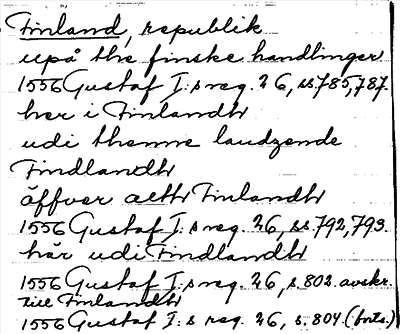 Finland, republik
upå the finske handlinger
1556 Gustaf I:s reg. 26, ss. 785, 787.
her i Finlandh
udi thenne landzende
Findlandh
åffver altt Finlandh
1556 Gustaf I:s reg. 26, ss. 792, 793.
här udi Findlandh
1556 Gustaf I:s reg. 26, s. 802. avskr.
till Finlandh
1556 Gustaf I:s reg. 26, s. 804 (forts.)